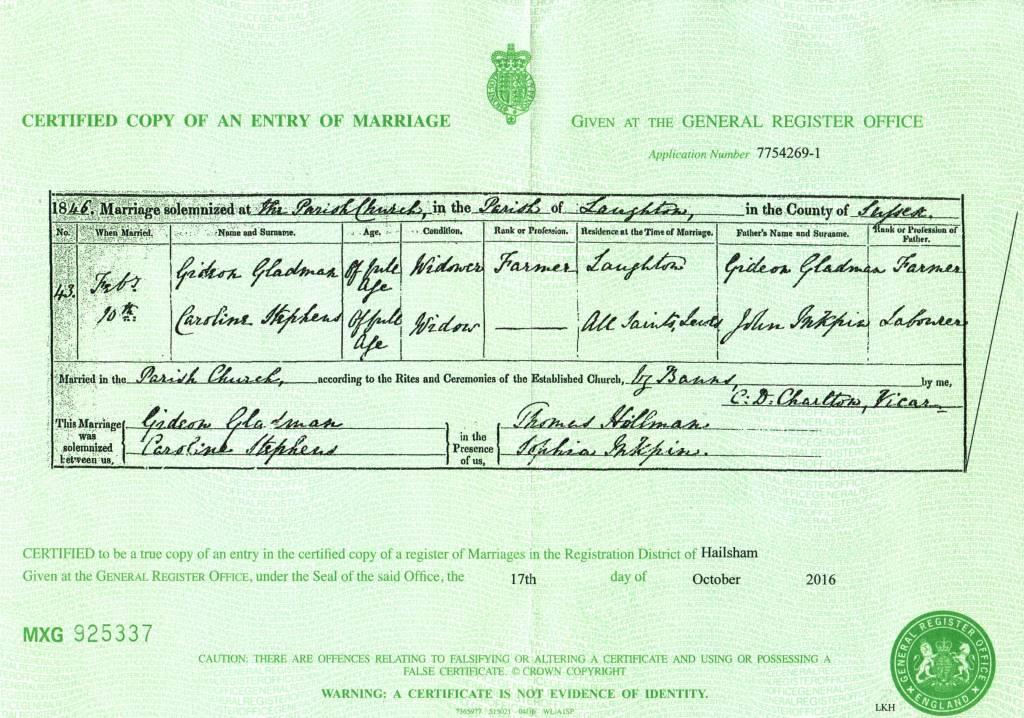 CERTIFIED COPY OF AN ENTRY OF MARRIAGE
GIVEN AT THE GENERAL REGISTER OFFICE
Application Number 7754269-1
1846. Marriage solemnized at the Parish Church, in the Parish of Laughton, in the County of Sussex.
No. When Married. Name and Surname. Age. Condition. Rank or Profession. Residence at the Time of Marriage. Father's Name and Surname. Rank or Profession of Father.
43. Feby Gideon Gladman Of full Age Widower Farmer Laughton Gideon Gladman Farmer
10th. Caroline Stephens Of full Age Widow All Saints, Lewes John Inkpin Labourer
Married in the Parish Church, according to the Rites and Ceremonies of the Established Church, by Banns, by me,
C: D: Charlton, Vicar
This Marriage was solemnized between us, Gideon Gladman Caroline Stephens in the Presence of us, Thomas Hillman Sophia Inkpin.
CERTIFIED to be a true copy of an entry in the certified copy of a register of Marriages in the Registration District of Hailsham
Given at the GENERAL REGISTER OFFICE, under the Seal of the said Office, the 17th day of October 2016
MXG 925337
CAUTION: THERE ARE OFFENCES RELATING TO FALSIFYING OR ALTERING A CERTIFICATE AND USING OR POSSESSING A
FALSE CERTIFICATE. © CROWN COPYRIGHT
WARNING: A CERTIFICATE IS NOT EVIDENCE OF IDENTITY.
GENERAL REGISTER OFFICE
ENGLAND
LKH